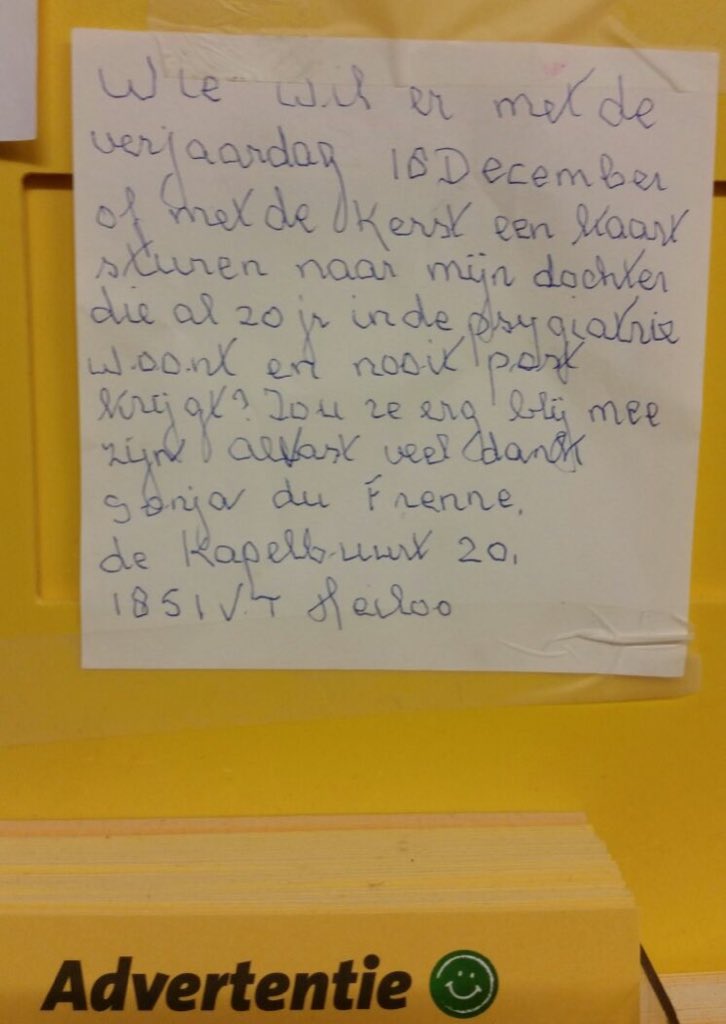 Wie wil er met de
verjaardag 18 December
of met de Kerst een kaart
sturen naar mijn dochter
die al 20 jr in de psygiatrie
woont en nooit post
krijgt? Zou ze erg blij mee
zijn! alvast veel dank
Sonja du Frenne.
de Kapelbuurt 20.
1851 V.T Heiloo
Advertentie